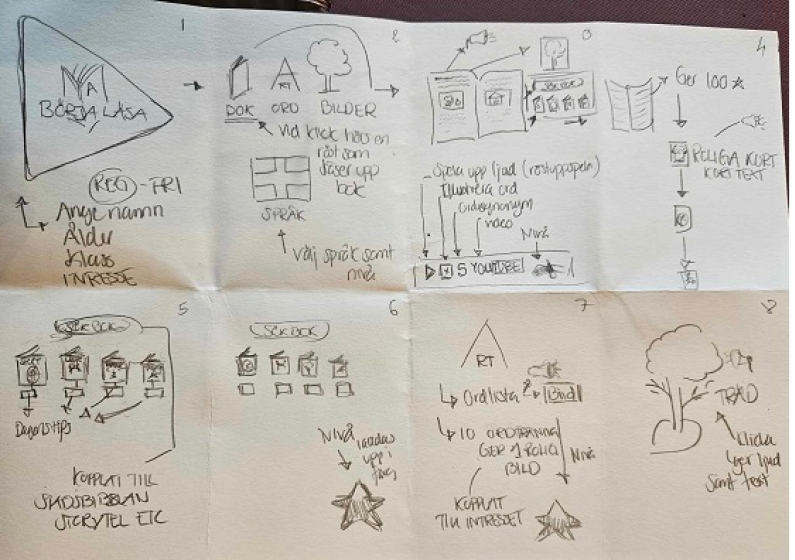 1
BÖRJA LÄSA
REG - FRI
Ange namn
Ålder
Klass
INTRESSE
2
BOK ORD BILDER
Vid klick hörs en
röst som
läser upp
bok
SPRÅK
Välj språk samt
nivå
3
SÖK BOK
Spela upp ljud (röstuppspeln)
Illustrera ord
Ordsynonym
video
Nivå
S YOUTUBE
4
Ger 100
ROLIGA KORT
KORT TEXT
5
SÖK BOK
Dagens tips
KOPPLAT TILL
STADSBIBBLAN
STORYTEL ETC
6
SÖK BOK
Nivå laddas
upp i
färg
7
RT
Ordlista
Bild
10 ORDTRÄNING
GER 1 ROLIG
BILD
Nivå
KOPPLAT
TILL INTRESSET
8
TRÄD
Klicka
ger ljud
samt text